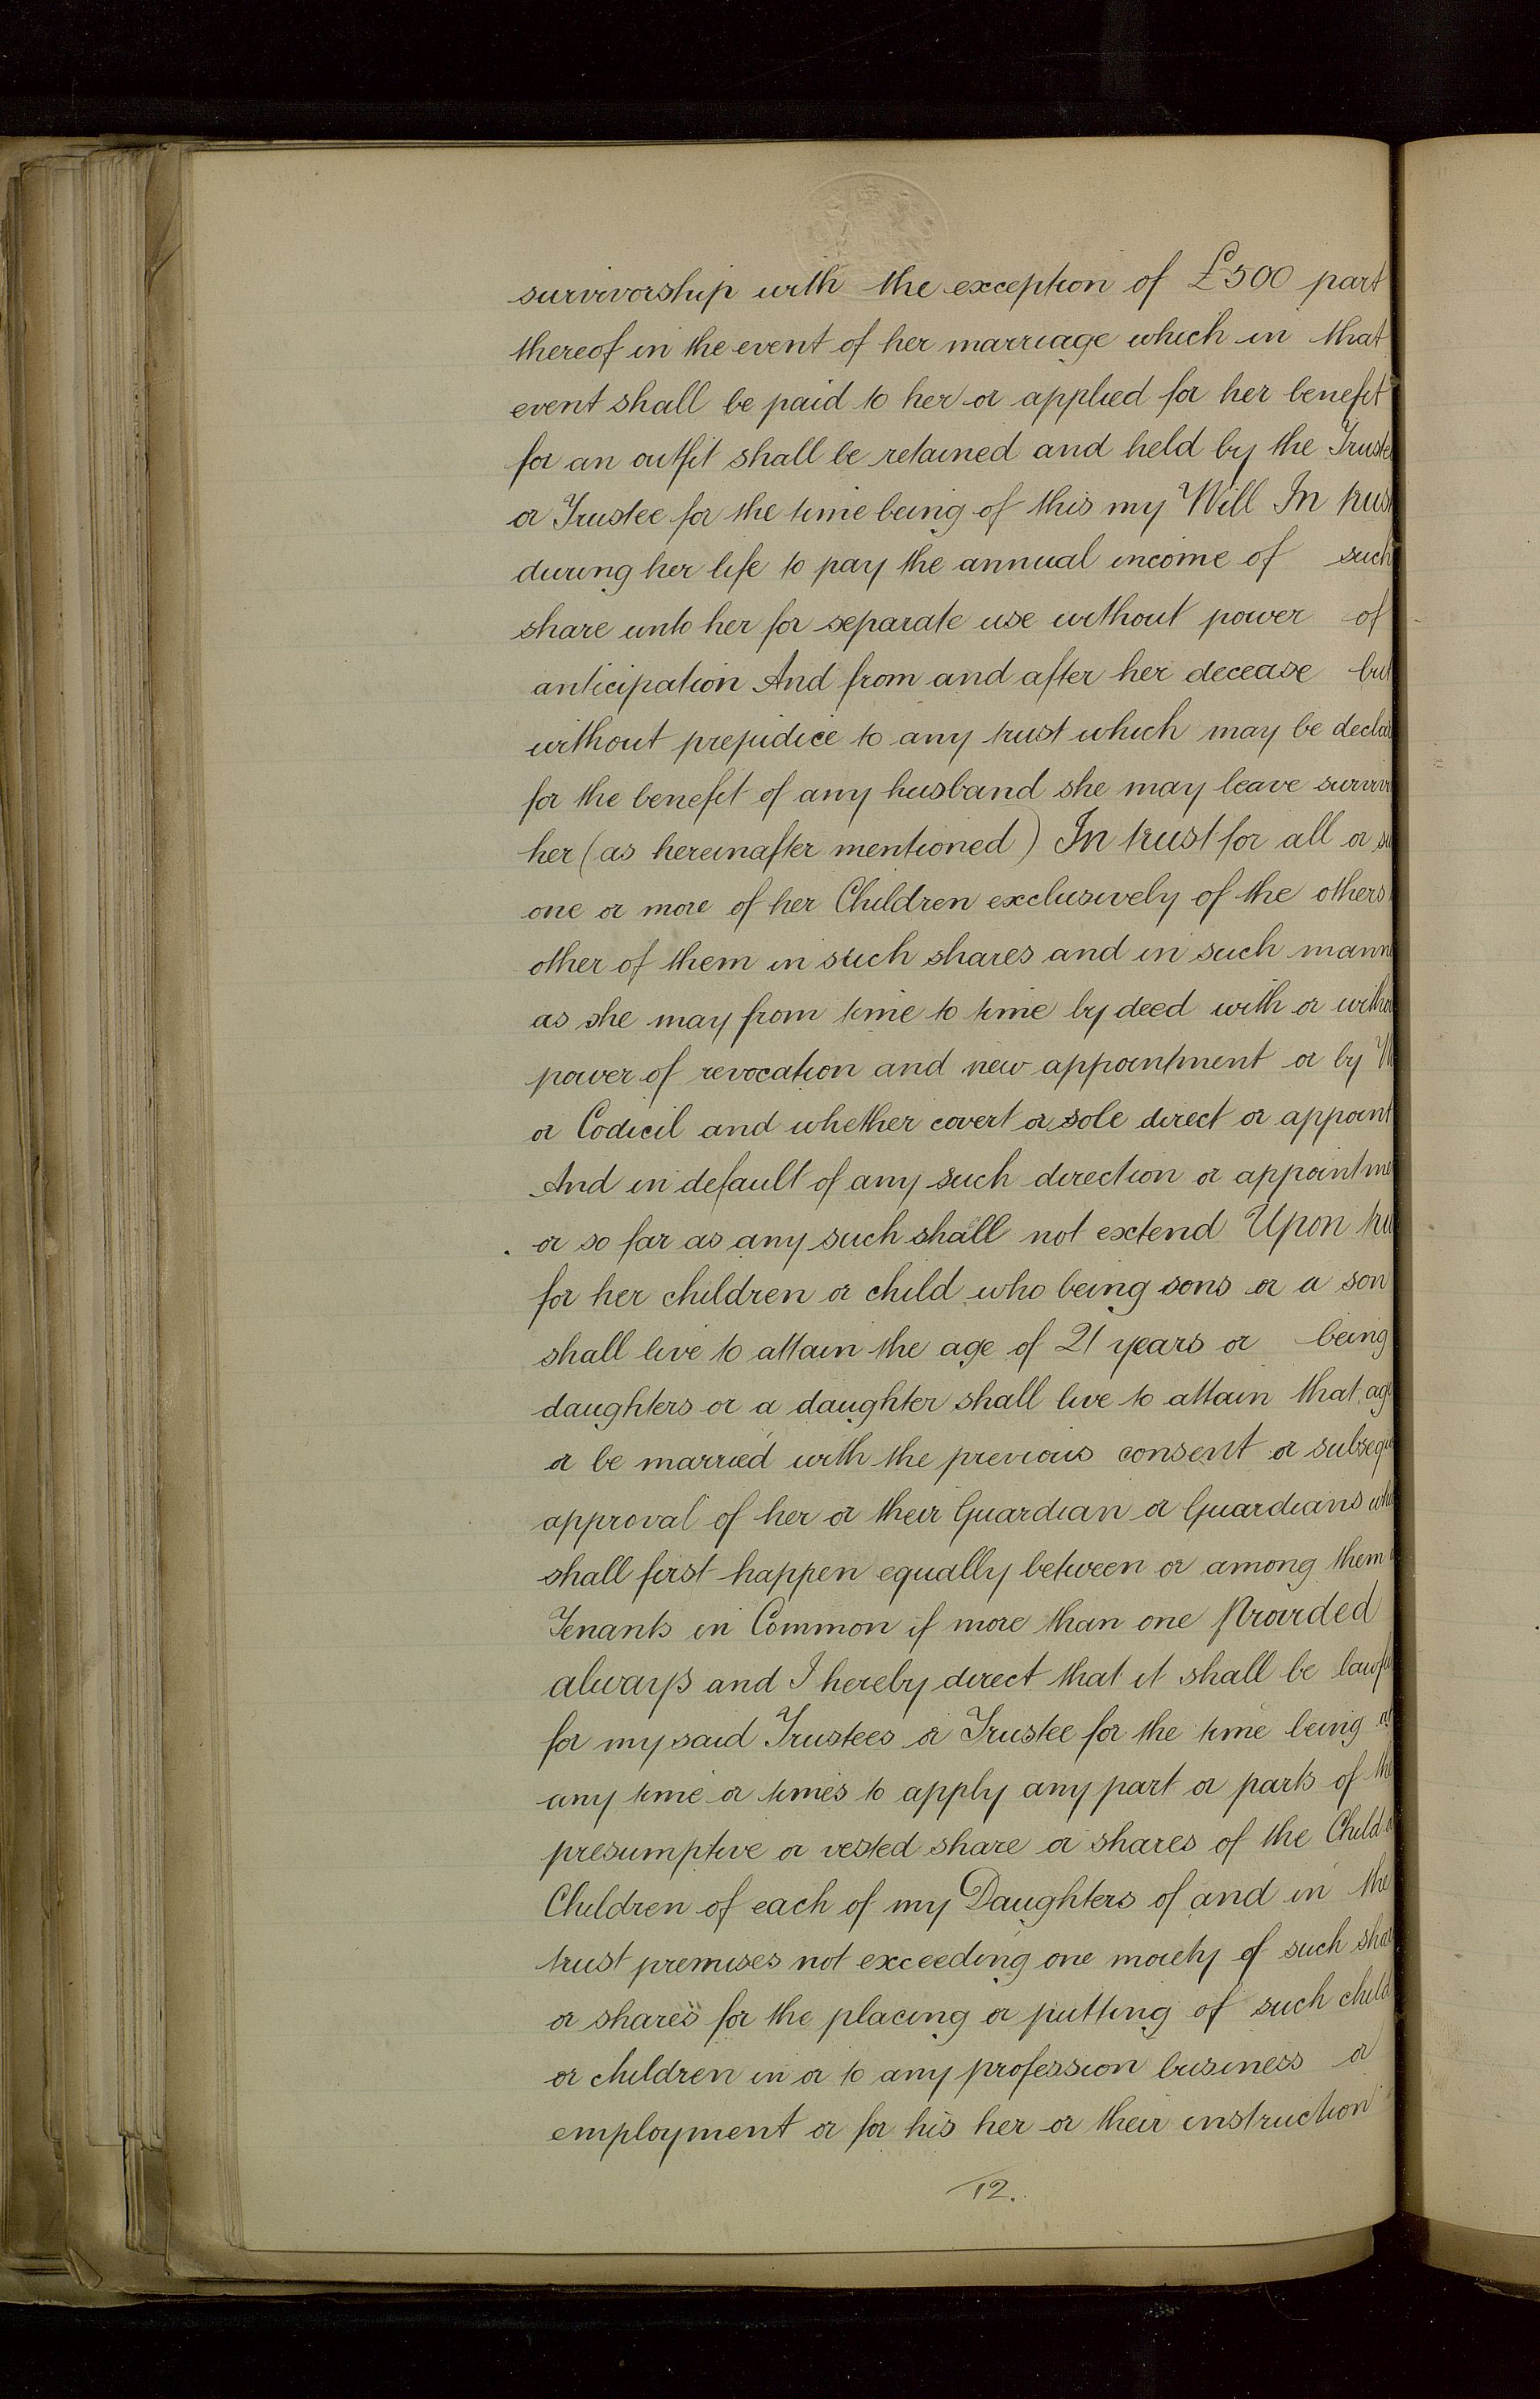 survivorship with the exception of £500 part
thereof in the event of her marriage which in that
event shall be paid to her or applied for her benefit
for an outfit shall be retained and held by the Truste
or Trustee for the time being of this my Will In trus
during her life to pay the annual income of such
share unto her for separate use without power of
anticipation And from and after her decease but
without prejudice to any trust which may be declar
for the benefit of any husband she may leave survivi
her (as hereinafter mentioned) In trust for all or su
one or more of her Children exclusively of the others
other of them in such shares and in such mann
as she may from time to time by deed with or witho
power of revocation and new appointment or by W
or Codicil and whether covert or sole direct or appoint
And in default of any such direction or appointme
or so far as any such shall not extend Upon tru
for her children or child who being sons or a son
shall live to attain the age of 21 years or being
daughters or a daughter shall live to attain that age
or be married with the previous consent or subseque
approval of her or their Guardian or Guardians whi
shall first happen equally between or among them
Tenants in Common if more than one Provided
always and I hereby direct that it shall be lawfu
for my said Trustees or Trustee for the time being at
any time or times to apply any part or parts of the
presumptive or vested share or shares of the Child o
Children of each of my Daughters of and in the
trust premises not exceeding one moiety of such shar
or shares for the placing or putting of such child
or children in or to any profession business or
employment or for his her or their instruction
12.